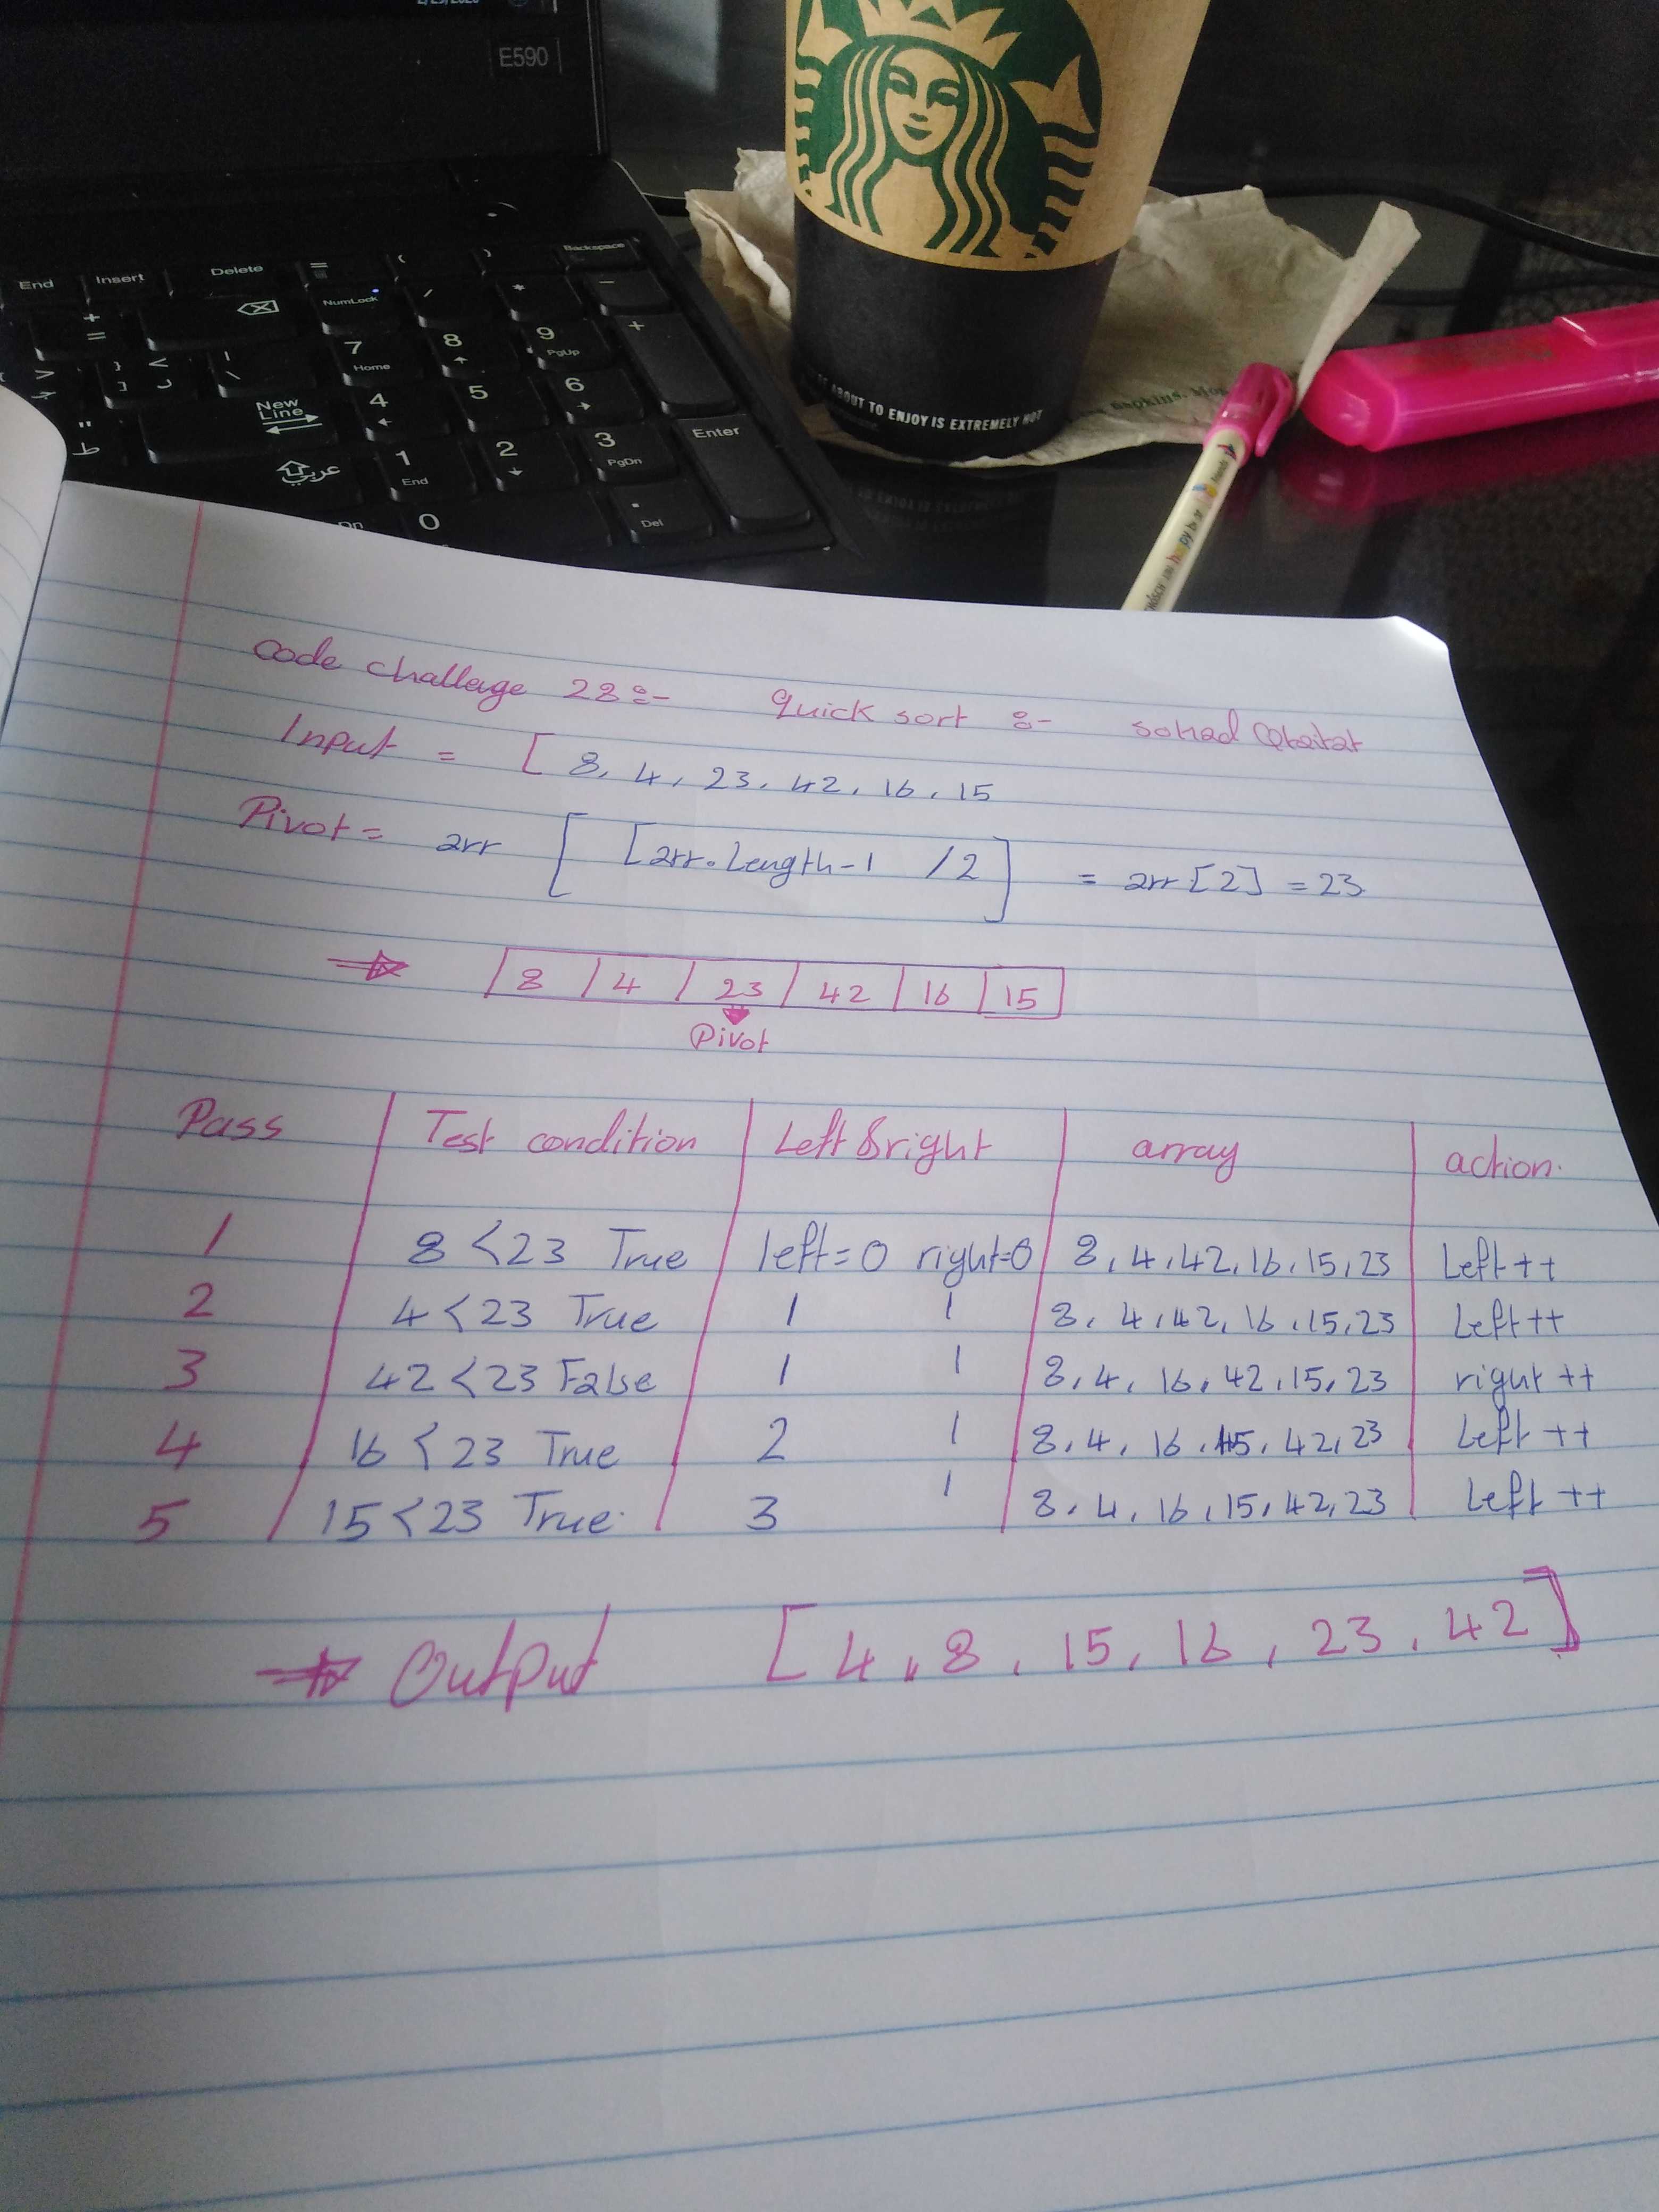 E590
Backspace
End Insert Delete = ( )
NumLock / * -
+ =
7 Home 8 9 PgUp +
4 5 6
New Line
1 End 2 3 PgDn Enter
عربي
0 . Del
ABOUT TO ENJOY IS EXTREMELY HOT
code challenge 28:- Quick sort :-
Input = [ 8, 4, 23, 42, 16, 15
Pivot = arr [ [arr.Length-1 /2 ] = arr[2] = 23
8 4 23 42 16 15
Pivot
Pass Test condition Left & right array action.
1 8 < 23 True left=0 right=0 8, 4, 42, 16, 15, 23 Left ++
2 4 < 23 True 1 1 8, 4, 42, 16, 15, 23 Left ++
3 42 < 23 False 1 1 8, 4, 16, 42, 15, 23 right ++
4 16 < 23 True 2 1 8, 4, 16, 15, 42, 23 Left ++
5 15 < 23 True. 3 1 8, 4, 16, 15, 42, 23 Left ++
Output [4, 8, 15, 16, 23, 42]